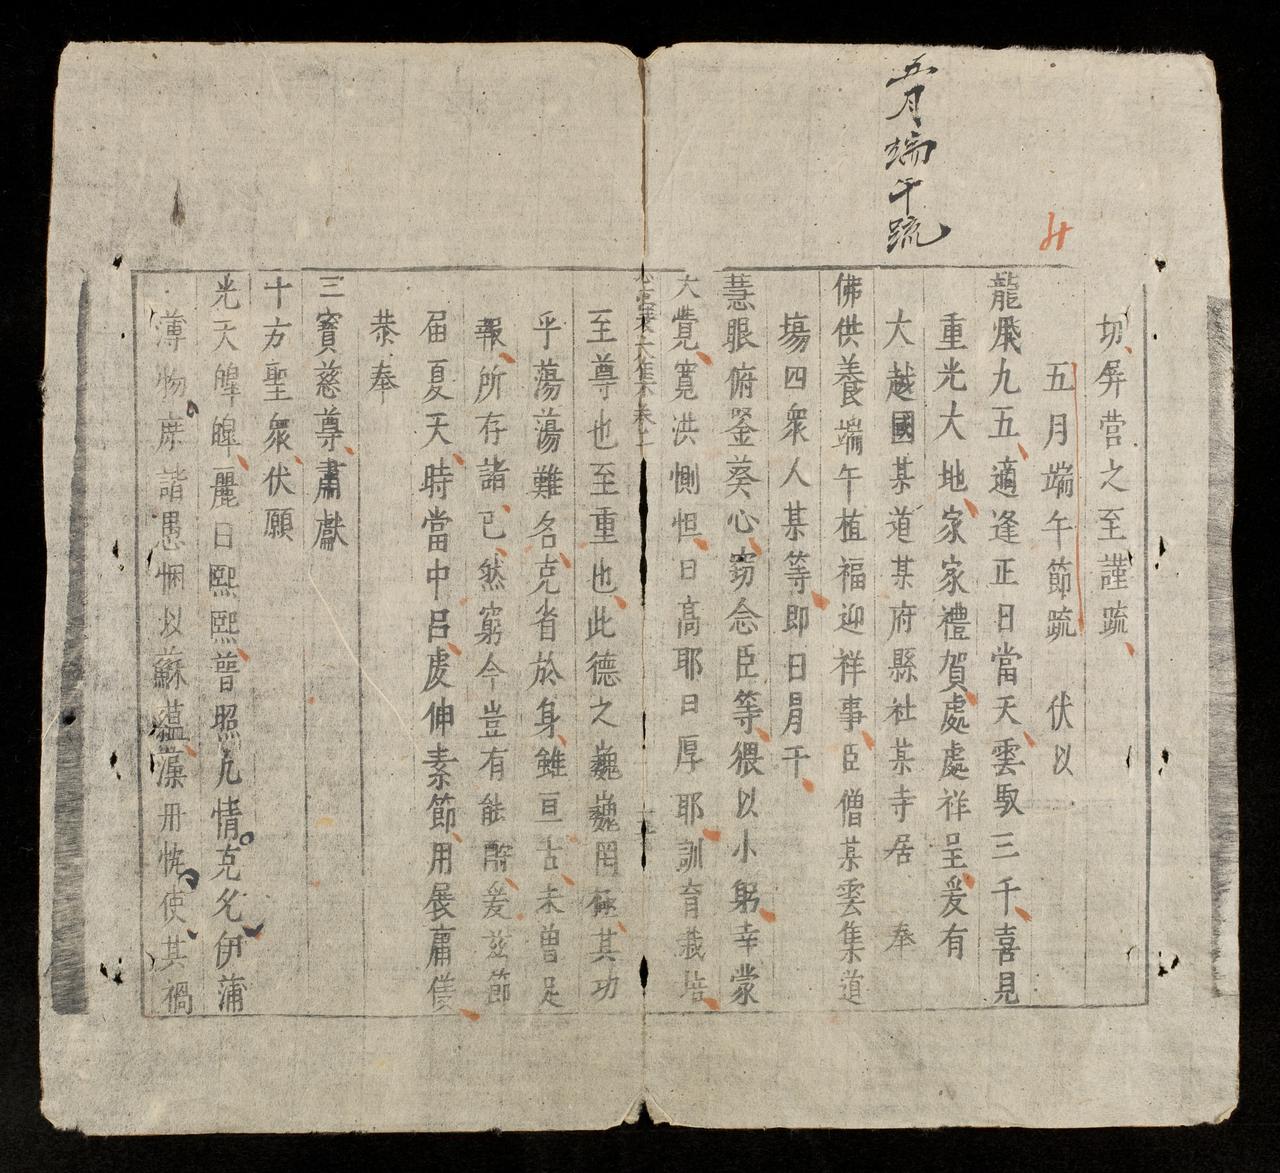 五月端午疏
切屏营之至謹疏
五月端午節疏　伏以
龍飛九五適逢正日當天雲馭三千喜見
重光大地家家禮賀處處祥呈爰有
大越國某道某府縣社某寺居　奉
佛供養端午植福迎祥事臣僧某雲集道
塲四衆人某等即日冐干
慧眼俯鉴葵心竊念臣等猥以小躬幸蒙
大覺寬洪惻怛日高耶日厚耶訓育栽培
至尊也至重也此德之巍巍罔極其功
乎蕩蕩難名克省於身雖亘古未曾足
報所存諸已然窮今豈有能酧爰兹節
届夏天時當中吕虔伸素節用展庸俴
恭奉
三寶慈尊肅獻
十方聖衆伏願
光天皥皥麗日熙熙普照凢情克名伊蒲
薄物席諧愚悃以蘇蕴藻冊忱使其禍